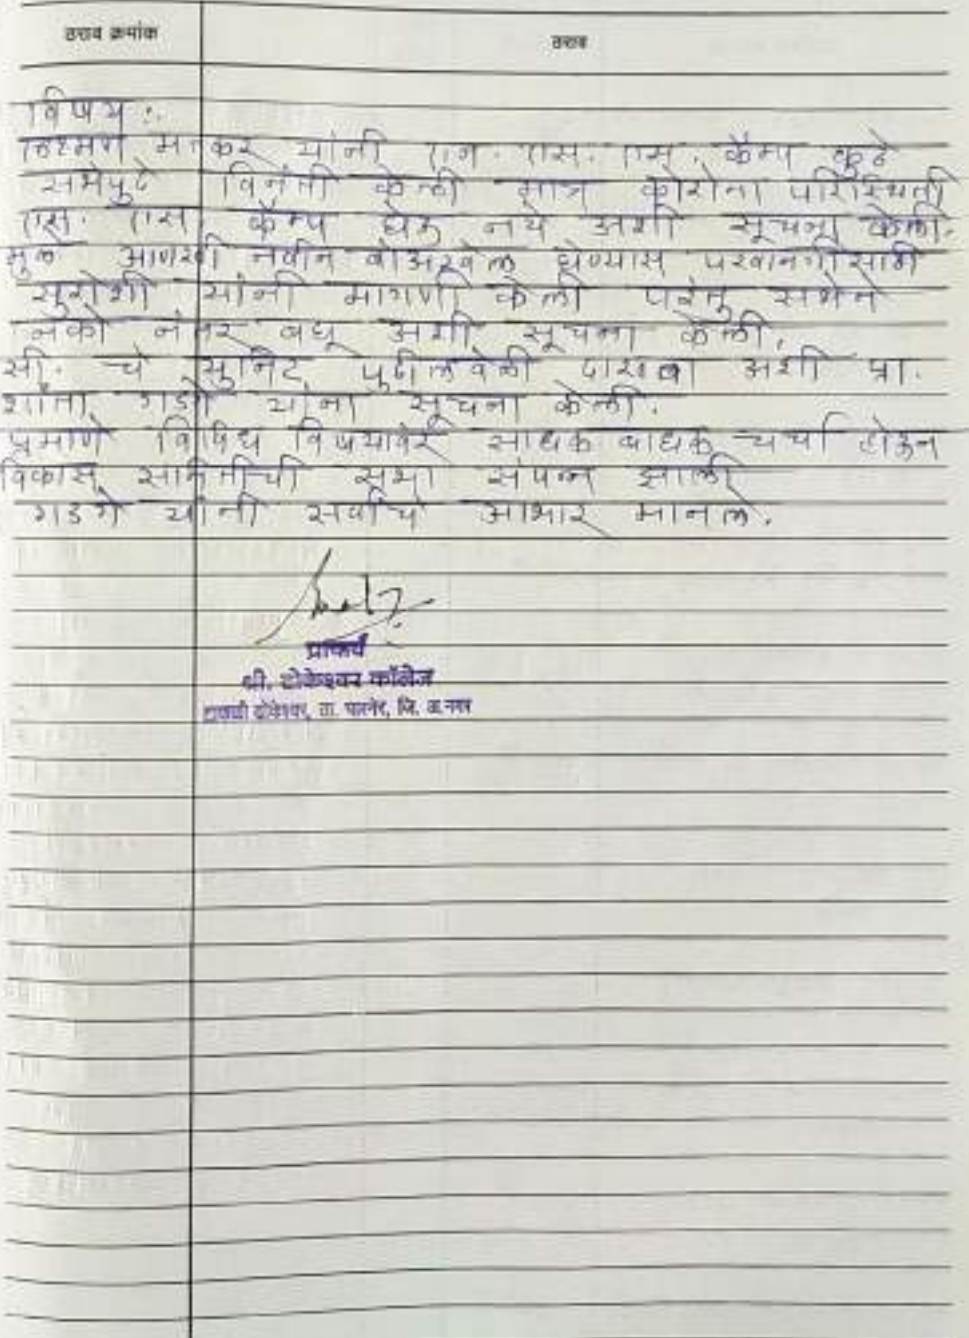 ठराव क्रमांक
ठराव
विषय :.
लक्ष्मण यांनी एन. एस. एस. कॅम्प कुठे
सभेपुढे विनंती केली मात्र कोरोना परिस्थिती
एस. एस. कॅम्प घेऊ नये अशी सूचना केली.
मुळे आणखी नवीन बोअरवेल घेण्यास परवानगीसाठी
सुरोशी यांनी मागणी केली परंतु सभेने
नको नंतर बघू अशी सूचना केली.
सी. चे युनिट पुढीलवेळी दाखवा अशी प्रा.
गडगे यांना सूचना केली.
प्रमाणे विविध विषयावर साधक बाधक चर्चा होऊन
विकास समितीची सभा संपन्न झाली
गडगे यांनी सर्वांचे आभार मानले.
प्राचार्य
श्री. ढोकेश्वर कॉलेज
टाकळी ढोकेश्वर, ता. पारनेर, जि. अ.नगर